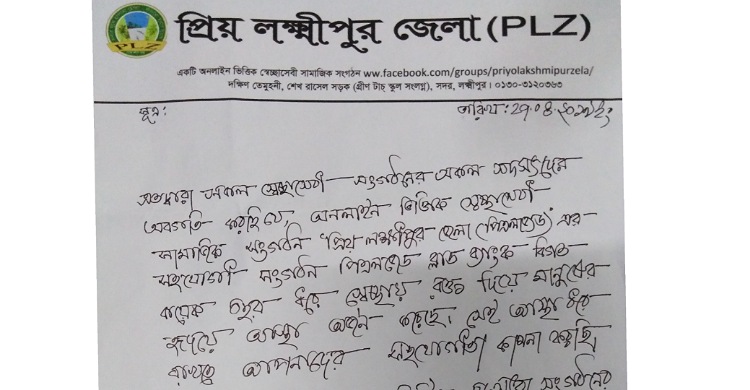 PLZ
প্রিয় লক্ষ্মীপুর জেলা (PLZ)
একটি অনলাইন ভিত্তিক স্বেচ্ছাসেবী সামাজিক সংগঠন ww.facebook.com/groups/priyolakshmipurzela/
দক্ষিণ তেমুহনী, শেখ রাসেল সড়ক (গ্রীণ টাচ্ স্কুল সংলগ্ন), সদর, লক্ষ্মীপুর। ০১৩০-৩১২০৩৬৩
সূত্র: তারিখ:
এতদ্বারা সকল স্বেচ্ছাসেবী সংগঠনের সকল সদস্যদের
অবগতি করছি যে, অনলাইন ভিত্তিক স্বেচ্ছাসেবী
সামাজিক সংগঠন "প্রিয় লক্ষ্মীপুর জেলা (পিএলজেড) এর
সহযোগী সংগঠন পিএলজেড ব্লাড ব্যাংক বিগত
কয়েক বছর ধরে স্বেচ্ছায় রক্ত দিয়ে মানুষের
হৃদয়ে আস্থা অর্জন করেছে। সেই আস্থা ধরে
রাখতে আপনাদের সহযোগিতা কামনা করছি।
সংগঠনের